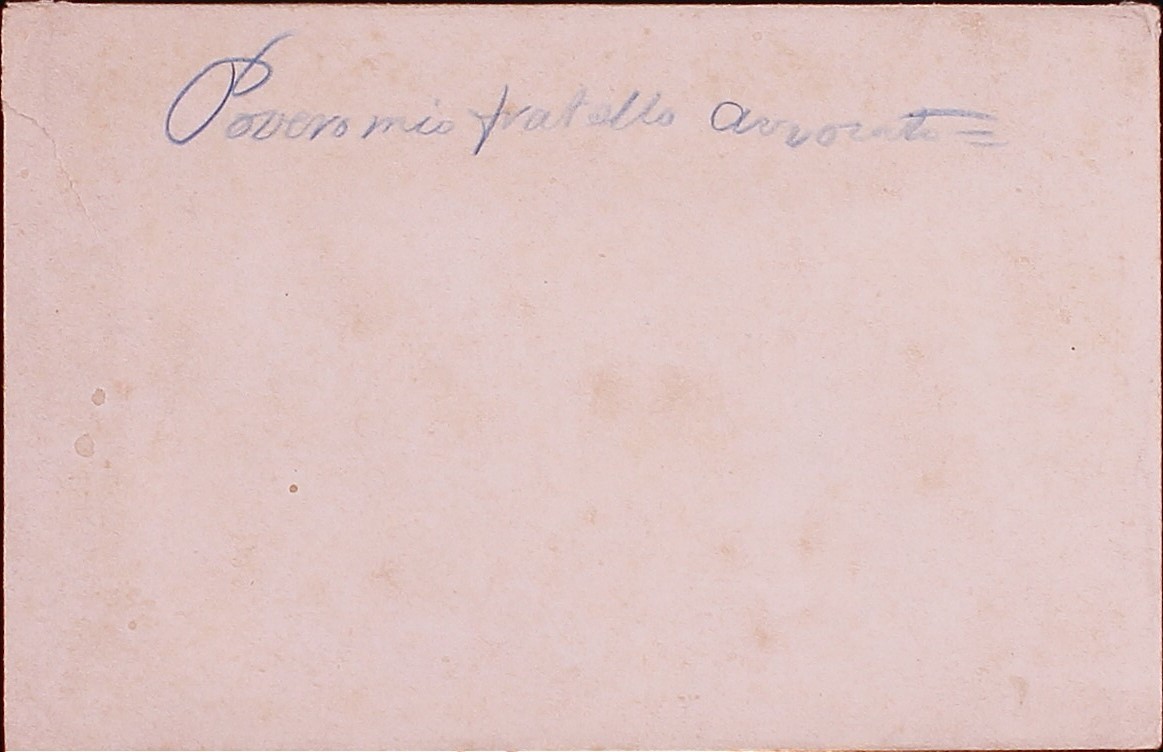 Povero mio fratello avvocato =